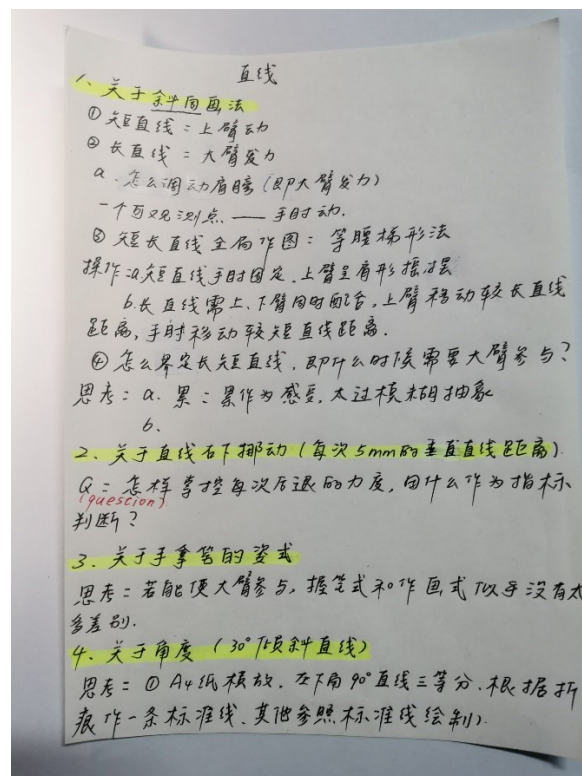 直线
1、关于斜向画法
① 短直线：上臂动
② 长直线：大臂发力
a、怎么调动肩膀（即大臂发力）
一个可观测点——手肘动.
③ 短长直线全局作图：等腰梯形法
操作：a.短直线手肘固定，上臂呈扇形摇摆
b.长直线需上、下臂同时配合，上臂移动较长直线
距离，手肘移动较短直线距离.
④ 怎么界定长短直线，即什么时候需要大臂参与？
思考：a. 累：累作为感受，太过模糊抽象
b.
2、关于直线右下挪动（每次5mm的垂直直线距离）.
Q：怎样掌控每次后退的力度，由什么作为指标
(question)
判断？
3、关于手拿笔的姿式
思考：若能使大臂参与，握笔式和作画式似乎没有太
多差别.
4、关于角度（30°倾斜直线）
思考：① A4纸横放．左下角90°直线三等分．根据折
痕作一条标准线、其他参照标准线绘制).